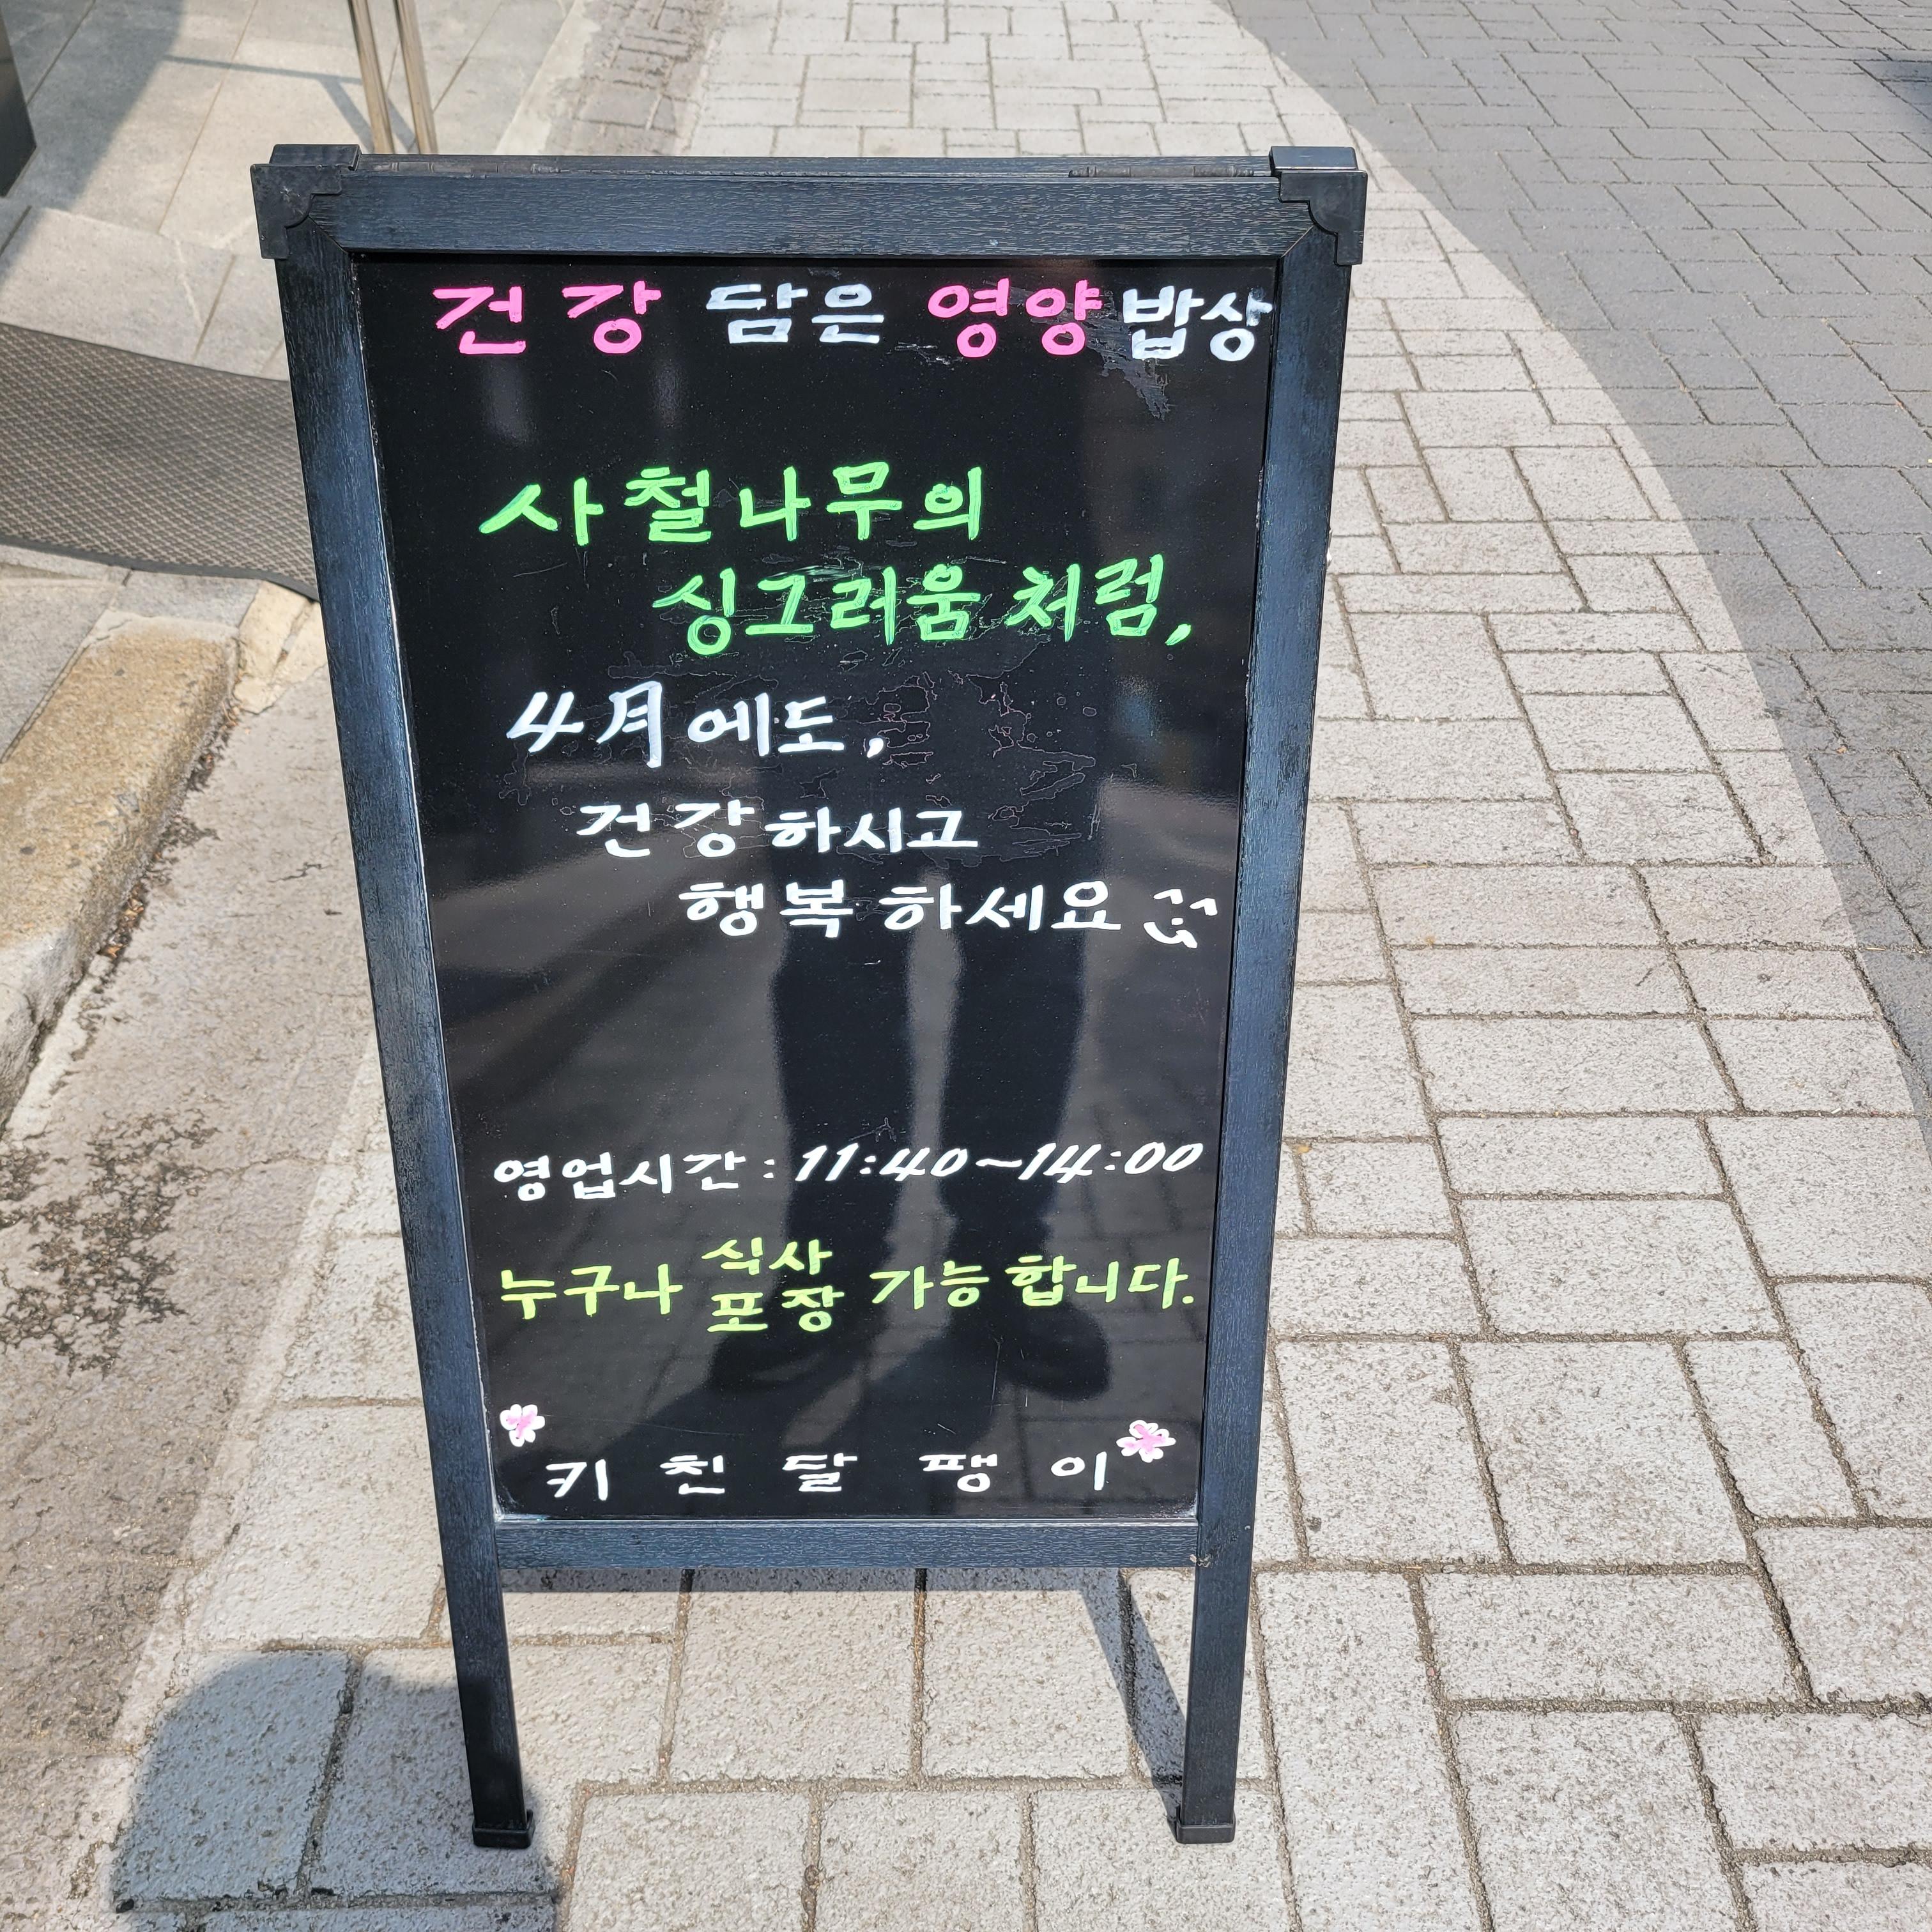 건강 담은 영양밥상
사철나무의
싱그러움처럼,
4月에도,
건강하시고
행복하세요
영업시간 : 11:40~14:00
누구나 식사 포장 가능합니다.
키친달팽이